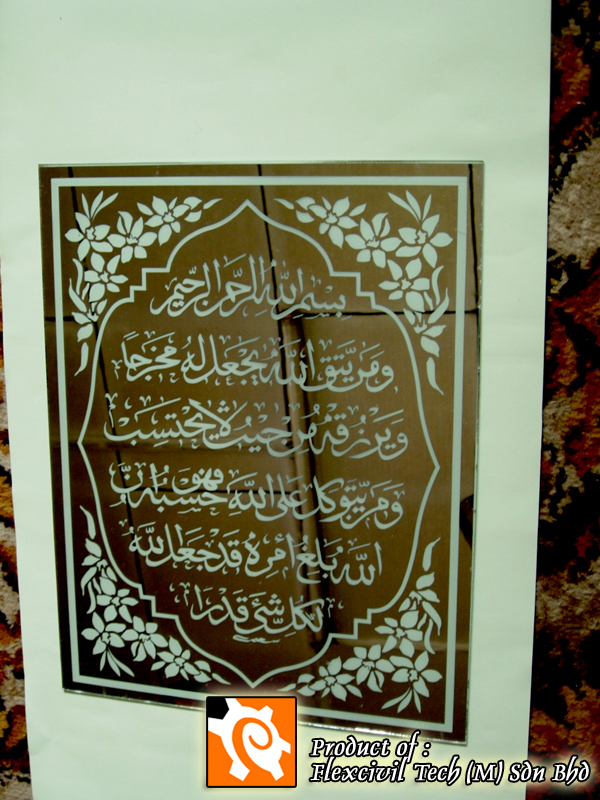 بِسْمِ اللهِ الرَّحْمَنِ الرَّحِيْمِ
وَمَنْ يَتَّقِ اللَّهَ يَجْعَلْ لَهُ مَخْرَجًا
وَيَرْزُقْهُ مِنْ حَيْثُ لَا يَحْتَسِبُ
وَمَنْ يَتَوَكَّلْ عَلَى اللَّهِ فَهُوَ حَسْبُهُ إِنَّ
اللَّهَ بَالِغُ أَمْرِهِ قَدْ جَعَلَ اللَّهُ
لِكُلِّ شَيْءٍ قَدْرًا
Product of :
Flexcivil Tech (M) Sdn Bhd